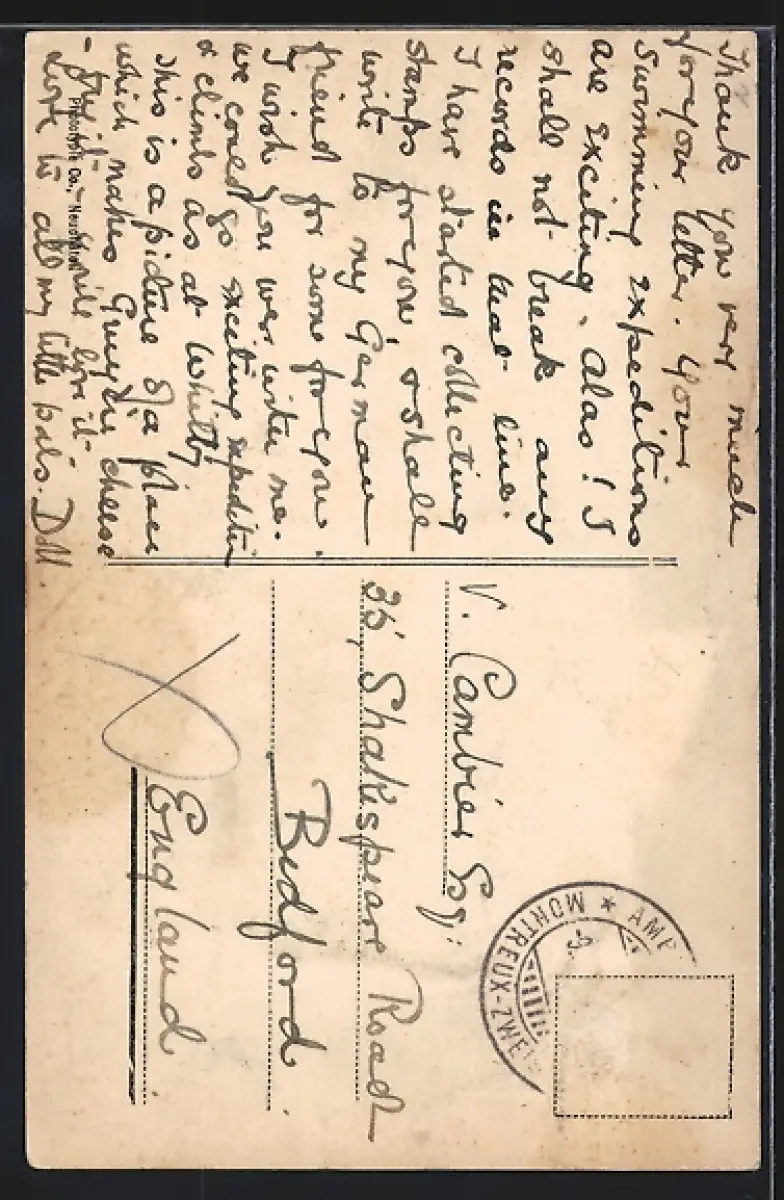 Thank you very much
for your letter. Your
Swimming expeditions
are exciting. Alas! I
shall not break any
records in that line.
I have started collecting
stamps for you, & shall
write to my German
friend for some for you.
I wish you were with me.
we could go exciting expeditin
& climbs as at Whitby
This is a picture of a place
which makes Gruyère cheese
- will love it -
Love to all my little pals. DM.
Co., Neuchâtel
V. Cambier Esq:
35, Shakespeare Road
Bedford.
England.
AMB
MONTREUX-ZWEIS